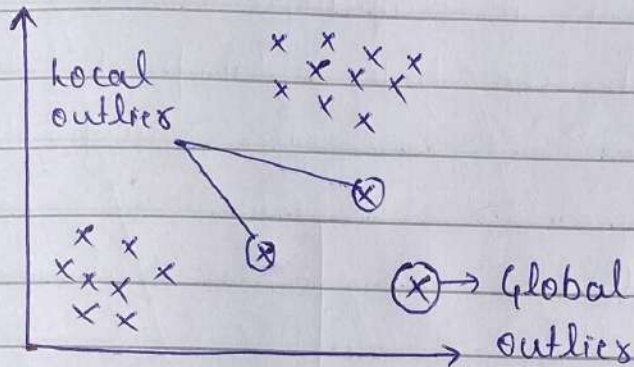 Local
outlier
Global
outlier